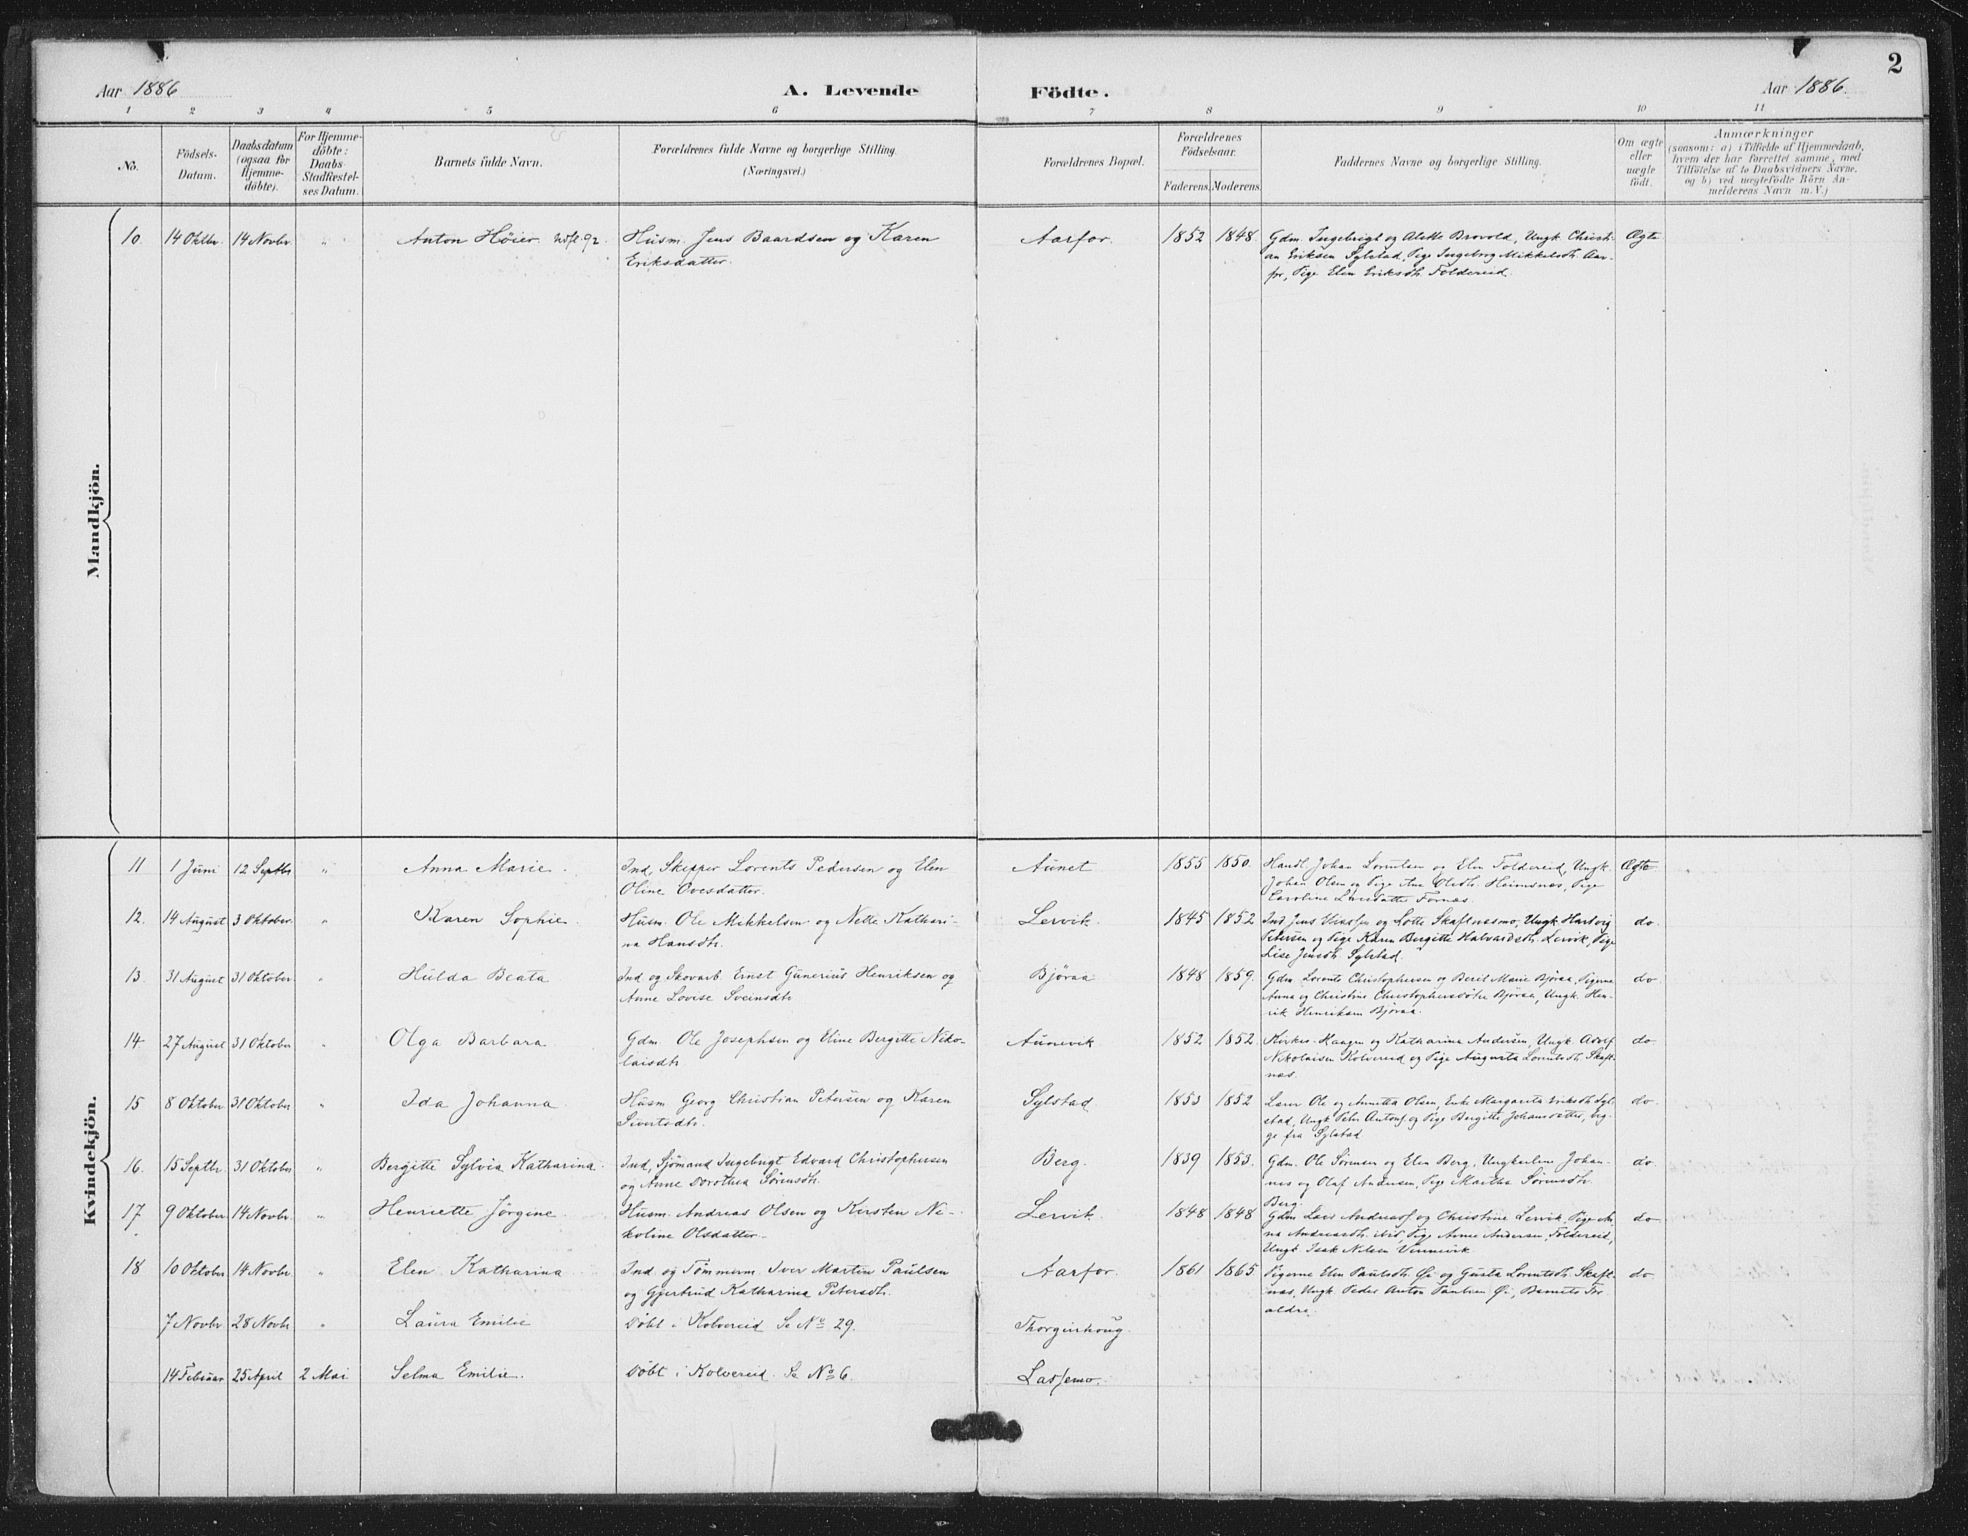 2
Aar 1886
A. Levende Födte.
Aar 1886.
1 2 3 4 5 6 7 8 9 10 11
No.
Födsels-
Datum.
Daabsdatum
(ogsaa for
Hjemme-
döbte).
For Hjemme-
döbte:
Daabs-
Stadfæstel-
ses Datum.
Barnets fulde Navn.
Forældrenes fulde Navne og borgerlige Stilling.
(Næringsvei.)
Forældrenes Bopæl.
Forældrenes
Födselsaar.
Faderens. Moderens.
Faddernes Navne og borgerlige Stilling.
Om ægte
eller
uægte
födt.
Anmærkninger
(saasom: a) i Tilfælde af Hjemmedaab,
hvem der har forrettet samme, med
Tilföielse af to Daabsvidners Navne,
og b) ved uægtefödte Börn An-
melderens Navn m. V.)
Mandkjön.
10. 14 Oktbr. 14 Novbr. " Anton Höier. Husm. Jens Baardsen og Karen Aarfor. 1852 1848. Gdm. Ingebrigt og Alette Brovold, Ungk. Christi- Ægte
Eriksdatter. an Eriksen Sylstad, Pige Ingeborg Mikkelsdtr. Aar-
for, Pige Elen Eriksdtr. Foldereid.
Kvindekjön.
11 1 Juni 12 Septbr " Anna Marie. Ind, Skipper Lorents Pedersen og Elen Aunet 1855 1850. Handl. Johan Lorntsen og Elen Foldereid, Ungk. Ægte
Oline Ovesdatter. Johan Olsen og Pige Ane Olsdtr. Heimsnæs, Pige
Caroline Fornæs.
12. 14 August 3 Oktober. " Karen Sophie. Husm. Ole Mikkelsen og Nette Kathari- Lervik. 1845 1852 Ind Jens og Lotte Skaftnesmo, Ungk. Hartvig do.
na Hansdtr. Petersen og Pige Karen Bergitte Halvardsdtr. Lervik, Pige
Lise Jensdtr. Sylstad.
13. 31 August 31 Oktober. " Hulda Beata Ind og Skovarb. Ernst Gunerius Henriksen og Björaa 1848 1859. Gdm. Lorents Christophersen og Berit Marie Björaa, Pigerne do
Anne Lovise Sveinsdtr. Anna og Christine Christophersdötre Björaa, Ungk. Hen-
rik Henriksen Björaa.
14 27 August 31 Oktober " Olga Barbara Gdm Ole Josephsen og Eline Bergitte Niko- Aunevik 1852 1852. Kirkes. Haagen og Katharina Andersen, Ungk Adolf do
laisdtr. Nikolaisen Kolvereid og Pige Augusta Lorentsdtr. Skaft-
næs.
15 8 Oktober 31 Oktober " Ida Johanna. Husm. Georg Christian Petersen og Karen Sylstad 1853 1852 Lærer Ole og Annetta Olsen, Enke Margareta Eriksdtr. Syl- do.
Sivertsdtr. stad, Ungk Peter Antons. og Pige Bergitte Johansdatter, beg-
ge fra Sylstad
16. 15 Septbr. 31 Oktober " Bergitte Sylvia Katharina. Ind, Sjömand Ingebrigt Edvard Christophersen Berg. 1839 1853. Gdm. Ole Sörensen og Elen Berg, Ungkarlene Johan- do.
og Anne Dorothea Sörensdtr. nes og Olaf Andersen, Pige Martha Sörensdtr.
Berg.
17 9 Oktober 14 Novbr. " Henriette Jörgine. Husm. Andreas Olsen og Kirsten Ni- Lervik. 1848 1848 Gdm. Lars Andreass. og Christine Lervik, Pige An- do
koline Olsdatter. na Andreasdtr. ibid, Pige Anne Andersen, Foldereid,
Ungk. Isak Nilsen Vennevik.
18 10 Oktober 14 Novbr " Elen Katharina Ind og Tömmerm. Iver Martin Paulsen Aarfor. 1861 1865 Pigerne Elen Paulsdtr. Öi og Gusta Lorentsdtr. Skaft- do.
og Gjertrud Katharina Petersdtr. næs, Ungk. Peder Anton Paulsen Öi, Barnets For-
ældre.
7 Novbr 28 Novbr " Laura Emilie Döbt i Kolvereid Se No 29. Thorgeirhoug.
14 Februar 25 April 2 Mai Selma Emilie. Döbt i Kolvereid. Se No 6. Lassemo.